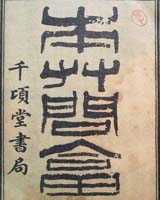 本艸問畣
千頃堂書局